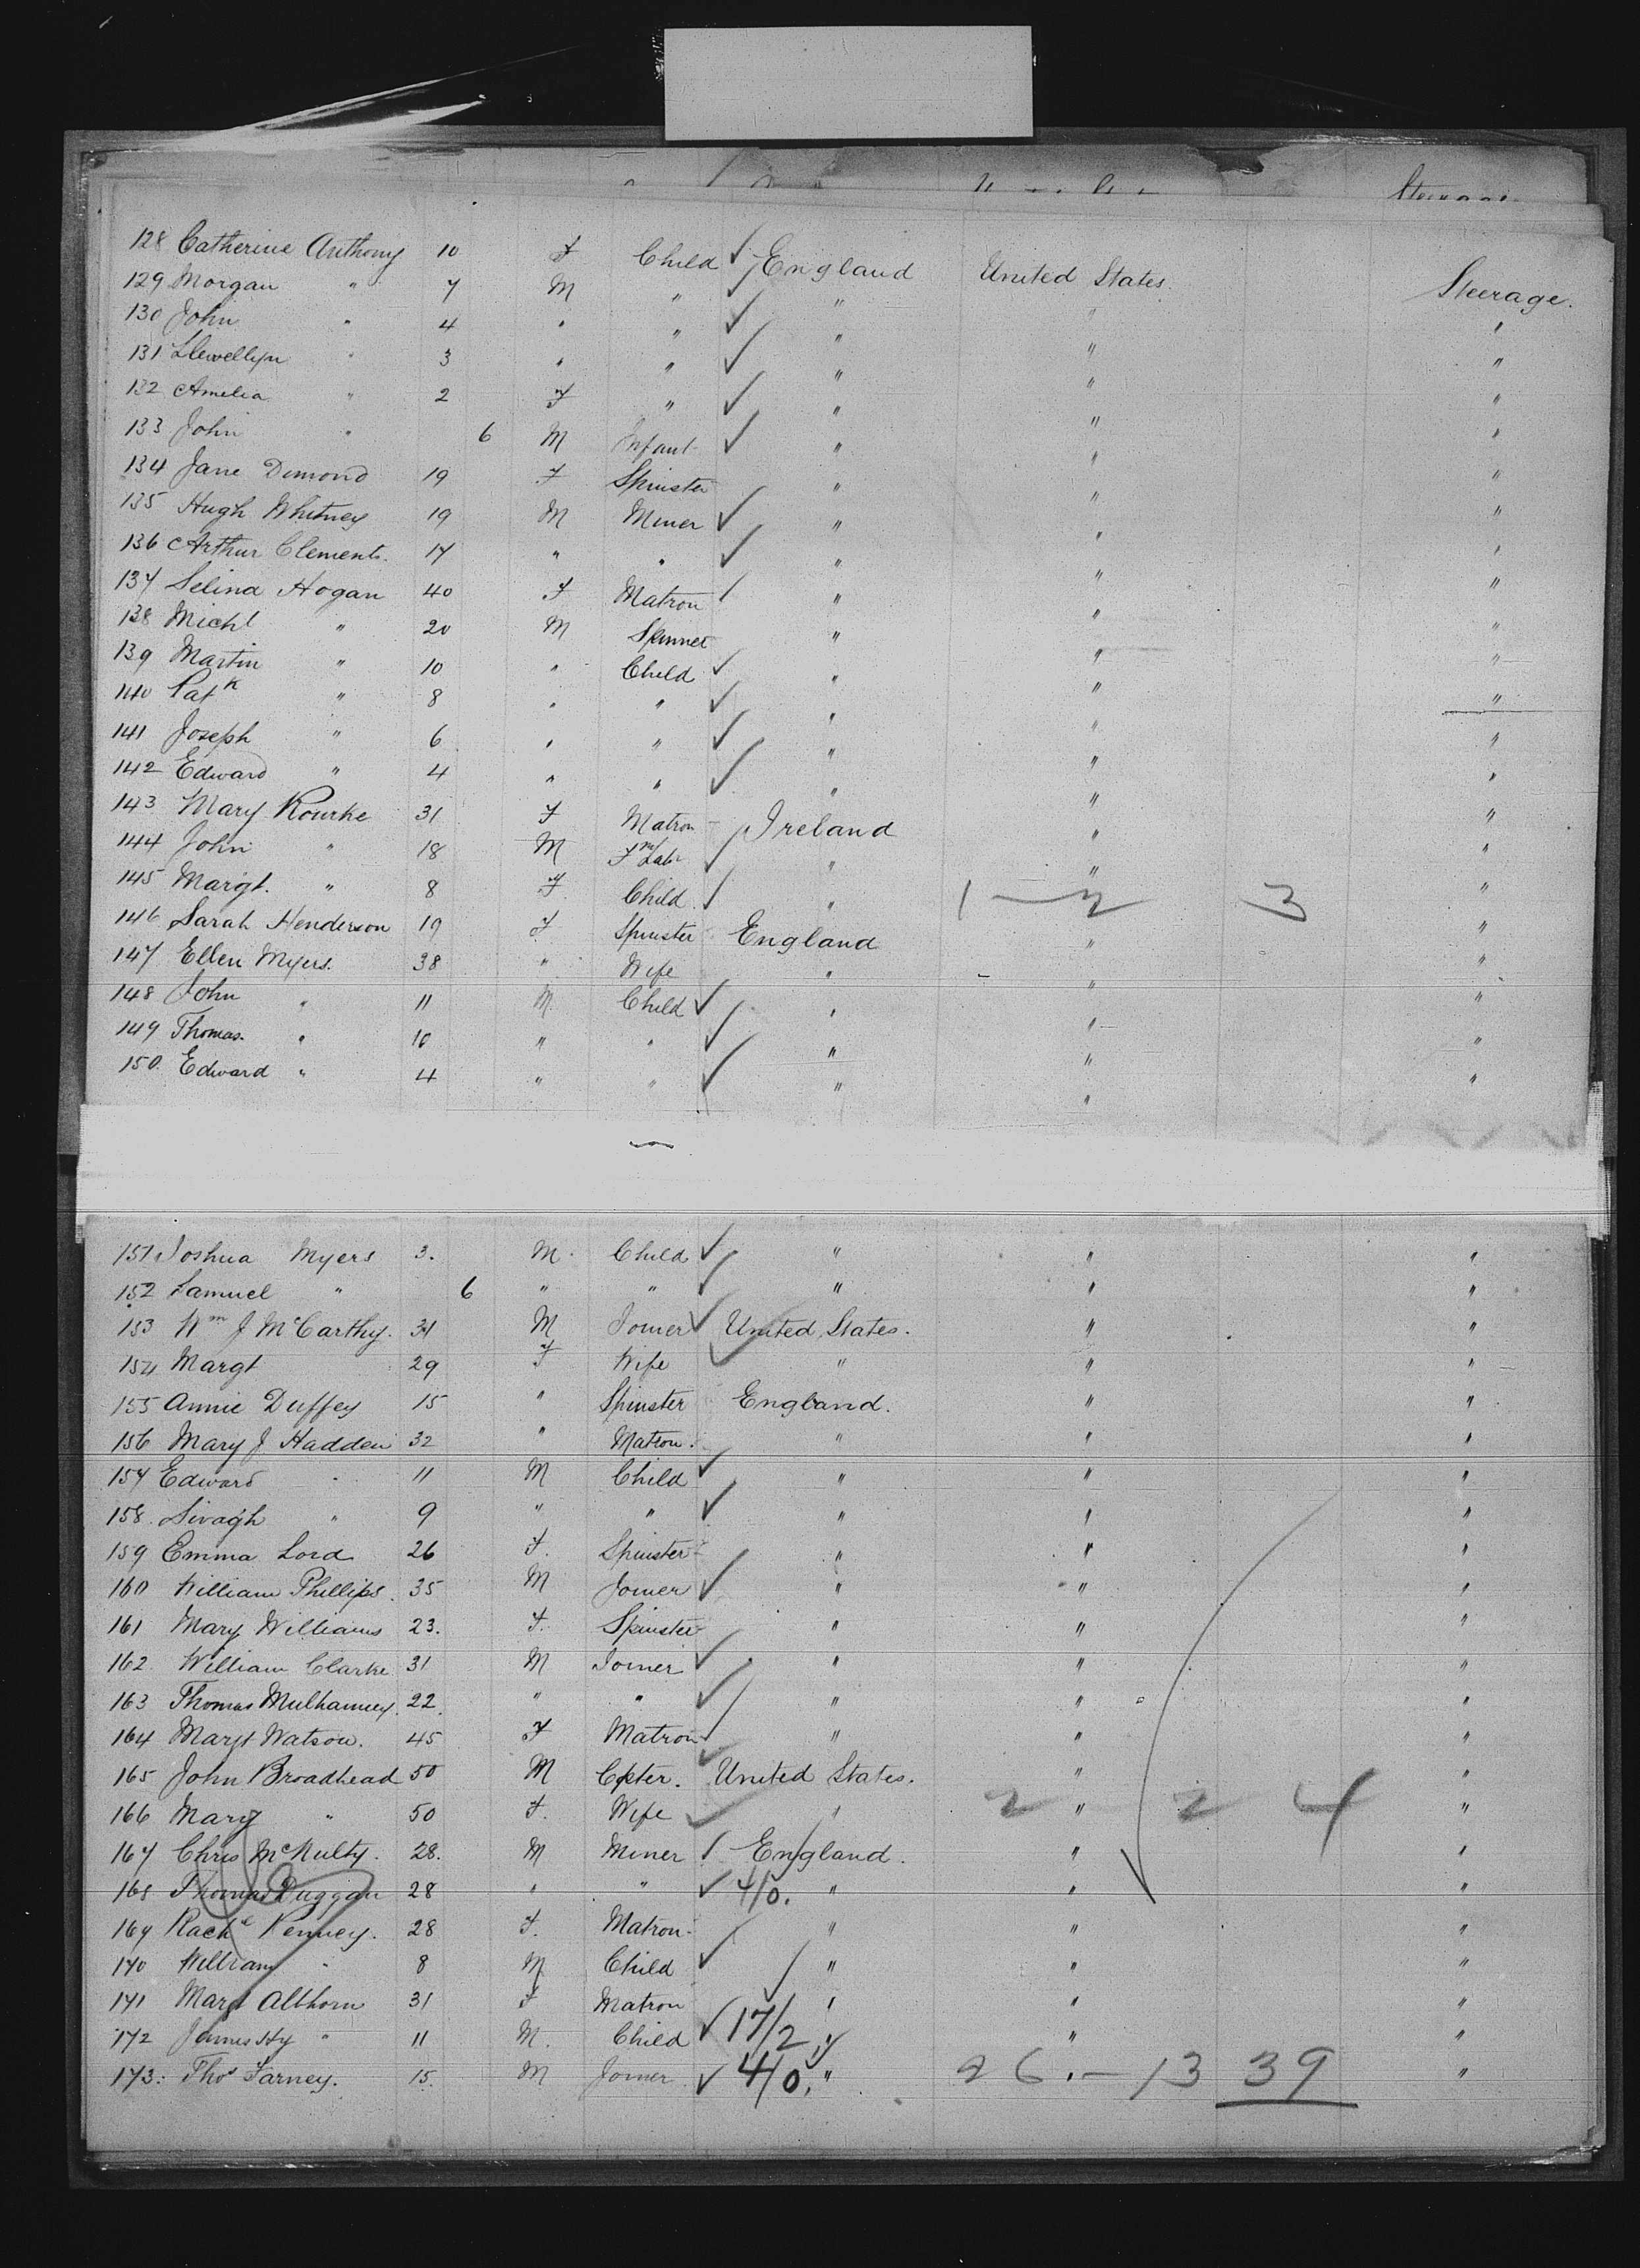 Steerage
128 Catherine Anthony 10 F Child England United States. Steerage.
129 Morgan " 7 M " " " "
130 John " 4 " " " " "
131 Llewellyn " 3 " " " " "
132 Amelia " 2 F " " " "
133 John " 6 M Infant " " "
134 Jane Dimond 19 F Spinster " " "
135 Hugh Whitney 19 M Miner " " "
136 Arthur Clements. 17 " " " " "
137 Selina Hogan 40 F Matron " " "
138 Michl " 20 M Spinner " " "
139 Martin " 10 " Child " " "
140 Patk " 8 " " " " "
141 Joseph " 6 " " " " "
142 Edward " 4 " " " " "
143 Mary Rourke 31 F Matron Ireland " "
144 John " 18 M Fm Labr " " "
145 Margt. " 8 F Child " 1 — 2 3 "
146 Sarah Henderson 19 F Spinster England " "
147 Ellen Myers. 38 " Wife " " "
148 John " 11 M Child " " "
149 Thomas. " 10 " " " " "
150. Edward " 4 " " " " "
151 Joshua Myers 3. M. Child " " "
152 Samuel " 6 " " " " "
153 Wm J McCarthy. 31 M Joiner United States. " "
154 Margt 29 F Wife " " "
155 Annie Duffey 15 " Spinster England. " "
156 Mary J Hadden 32 " Matron. " " "
157 Edward " 11 M Child " " "
158. " 9 " " " " "
159 Emma Lord 26 F. Spinster " " "
160 William Phillips. 35 M Joiner " " "
161 Mary Williams 23. F. Spinster " " "
162. William Clarke 31 M Joiner " " "
163 Thomas 22. " " " " "
164 Margt Watson. 45 F Matron " " "
165 John Broadhead 50 M Cpter. United States. " "
166 Mary " 50 F. Wife " 2 " 2 4 "
167 Chris McNulty. 28. M Miner England. " "
168 Thomas Duggan 28 " " 4/0. " " "
169 Rachl Kenney. 28 F. Matron " " "
170 William " 8 M Child " " "
171 Margt Althorn 31 F Matron " " "
172 James Hy " 11 M. Child 17/2 " " "
173. Thos Farney. 15. M Joiner 4/0. " 26 " — 13 39 "